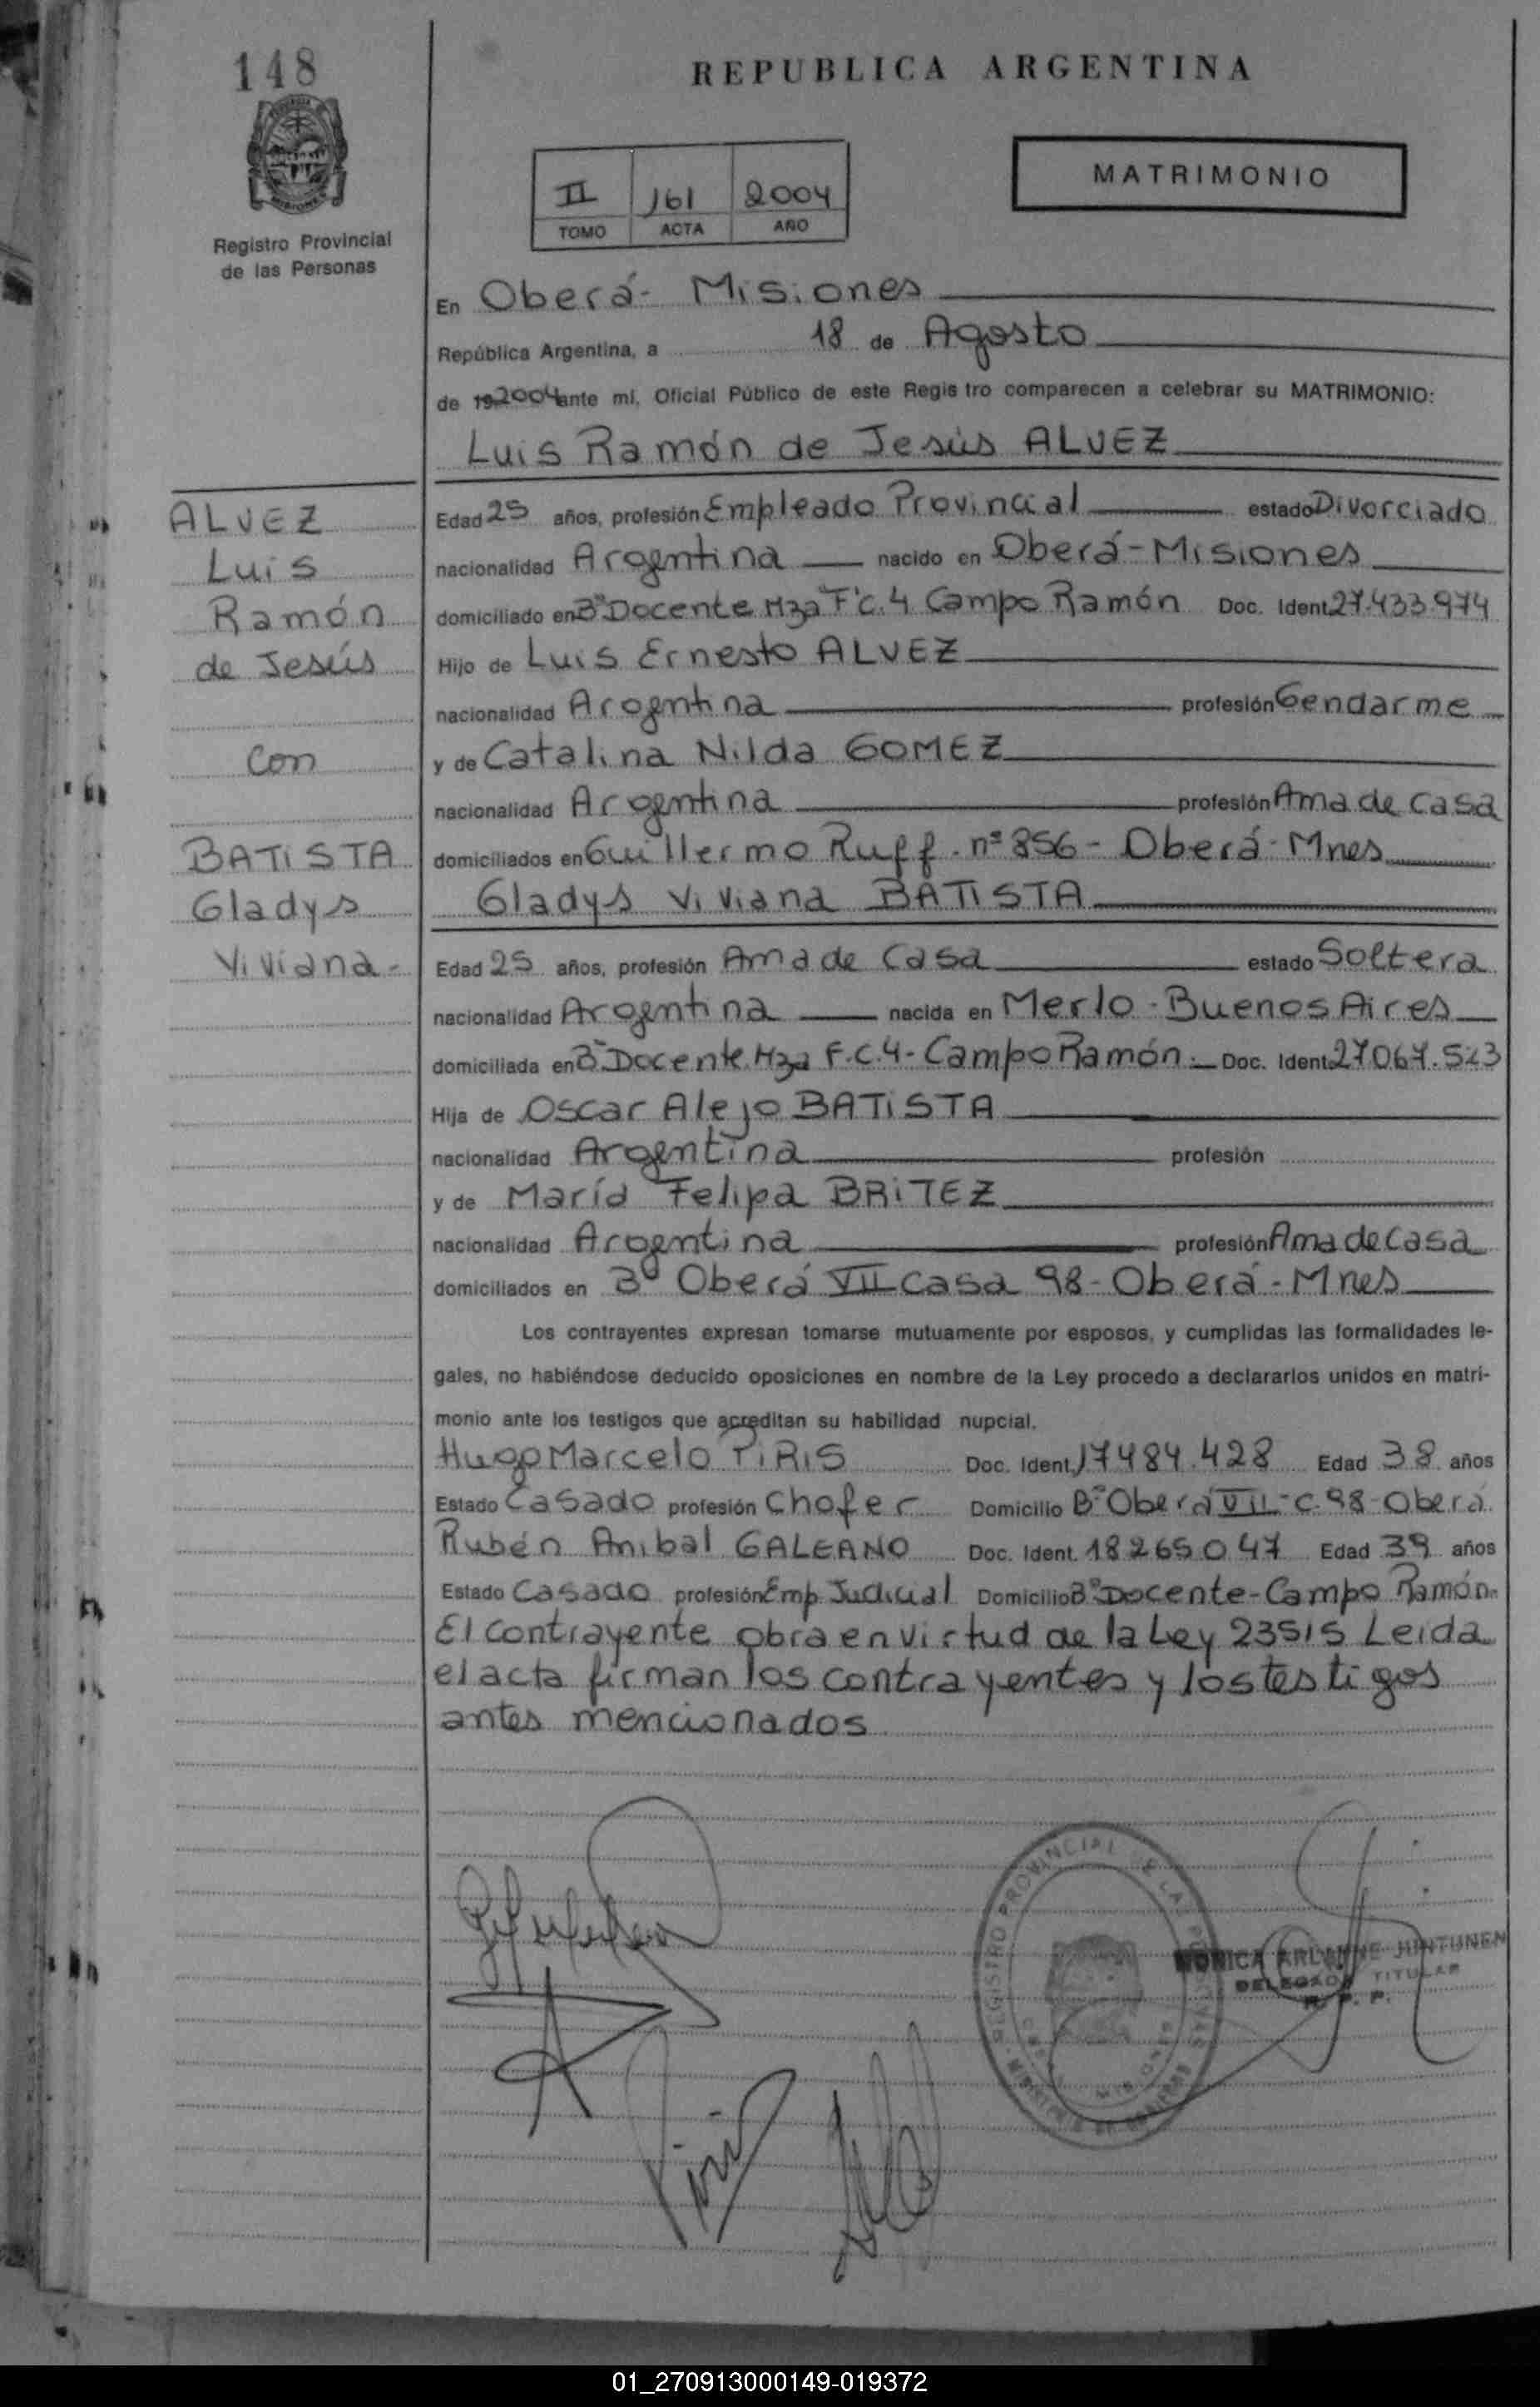 148
REPUBLICA ARGENTINA
MATRIMONIO
II 161 2004
TOMO ACTA AÑO
Registro Provincial
de las Personas
En Oberá- Misiones
República Argentina, a 18 de Agosto
de 19 2004 ante mi, Oficial Público de este Regis tro comparecen a celebrar su MATRIMONIO:
Luis Ramón de Jesús ALVEZ
ALVEZ
Luis
Ramón
de Jesús
con
BATISTA
Gladys
Viviana-
Edad 25 años, profesión Empleado Provincial estado Divorciado
nacionalidad Argentina nacido en Oberá-Misiones
domiciliado en Bº Docente Mza "F" C.4 Campo Ramón Doc. Ident. 27.433.974
Hijo de Luis Ernesto ALVEZ
nacionalidad Argentina profesión Gendarme
y de Catalina Nilda GOMEZ
nacionalidad Argentina profesión Ama de casa
domiciliados en Guillermo Ruff. nº 856- Oberá- Mnes
Gladys Viviana BATISTA
Edad 25 años, profesión Ama de Casa estado Soltera
nacionalidad Argentina nacida en Merlo-Buenos Aires
domiciliada en Bº Docente Mza F.C.4- Campo Ramón. Doc. Ident. 27.067.523
Hija de Oscar Alejo BATISTA
nacionalidad Argentina profesión
y de María Felipa BRITEZ
nacionalidad Argentina profesión Ama de Casa
domiciliados en Bº Oberá VII casa 98-Oberá-Mnes
Los contrayentes expresan tomarse mutuamente por esposos, y cumplidas las formalidades le-
gales, no habiéndose deducido oposiciones en nombre de la Ley procedo a declararlos unidos en matri-
monio ante los testigos que acreditan su habilidad nupcial.
Hugo Marcelo PIRIS Doc. Ident. 17484.428 Edad 38 años
Estado Casado profesión Chofer Domicilio Bº Oberá VII-C.98-Oberá
Rubén Anibal GALEANO Doc. Ident. 18265047 Edad 39 años
Estado Casado profesión Emp. Judicial Domicilio Bº Docente-Campo Ramón.
El contrayente obra en virtud de la Ley 23515 Leida
el acta firman los contrayentes y los testigos
antes mencionados
REGISTRO PROVINCIAL DE LAS PERSONAS
MONICA ARIANNE HINTUNEN
DELEGADA TITULAR
R. P. P.
01_270913000149-019372